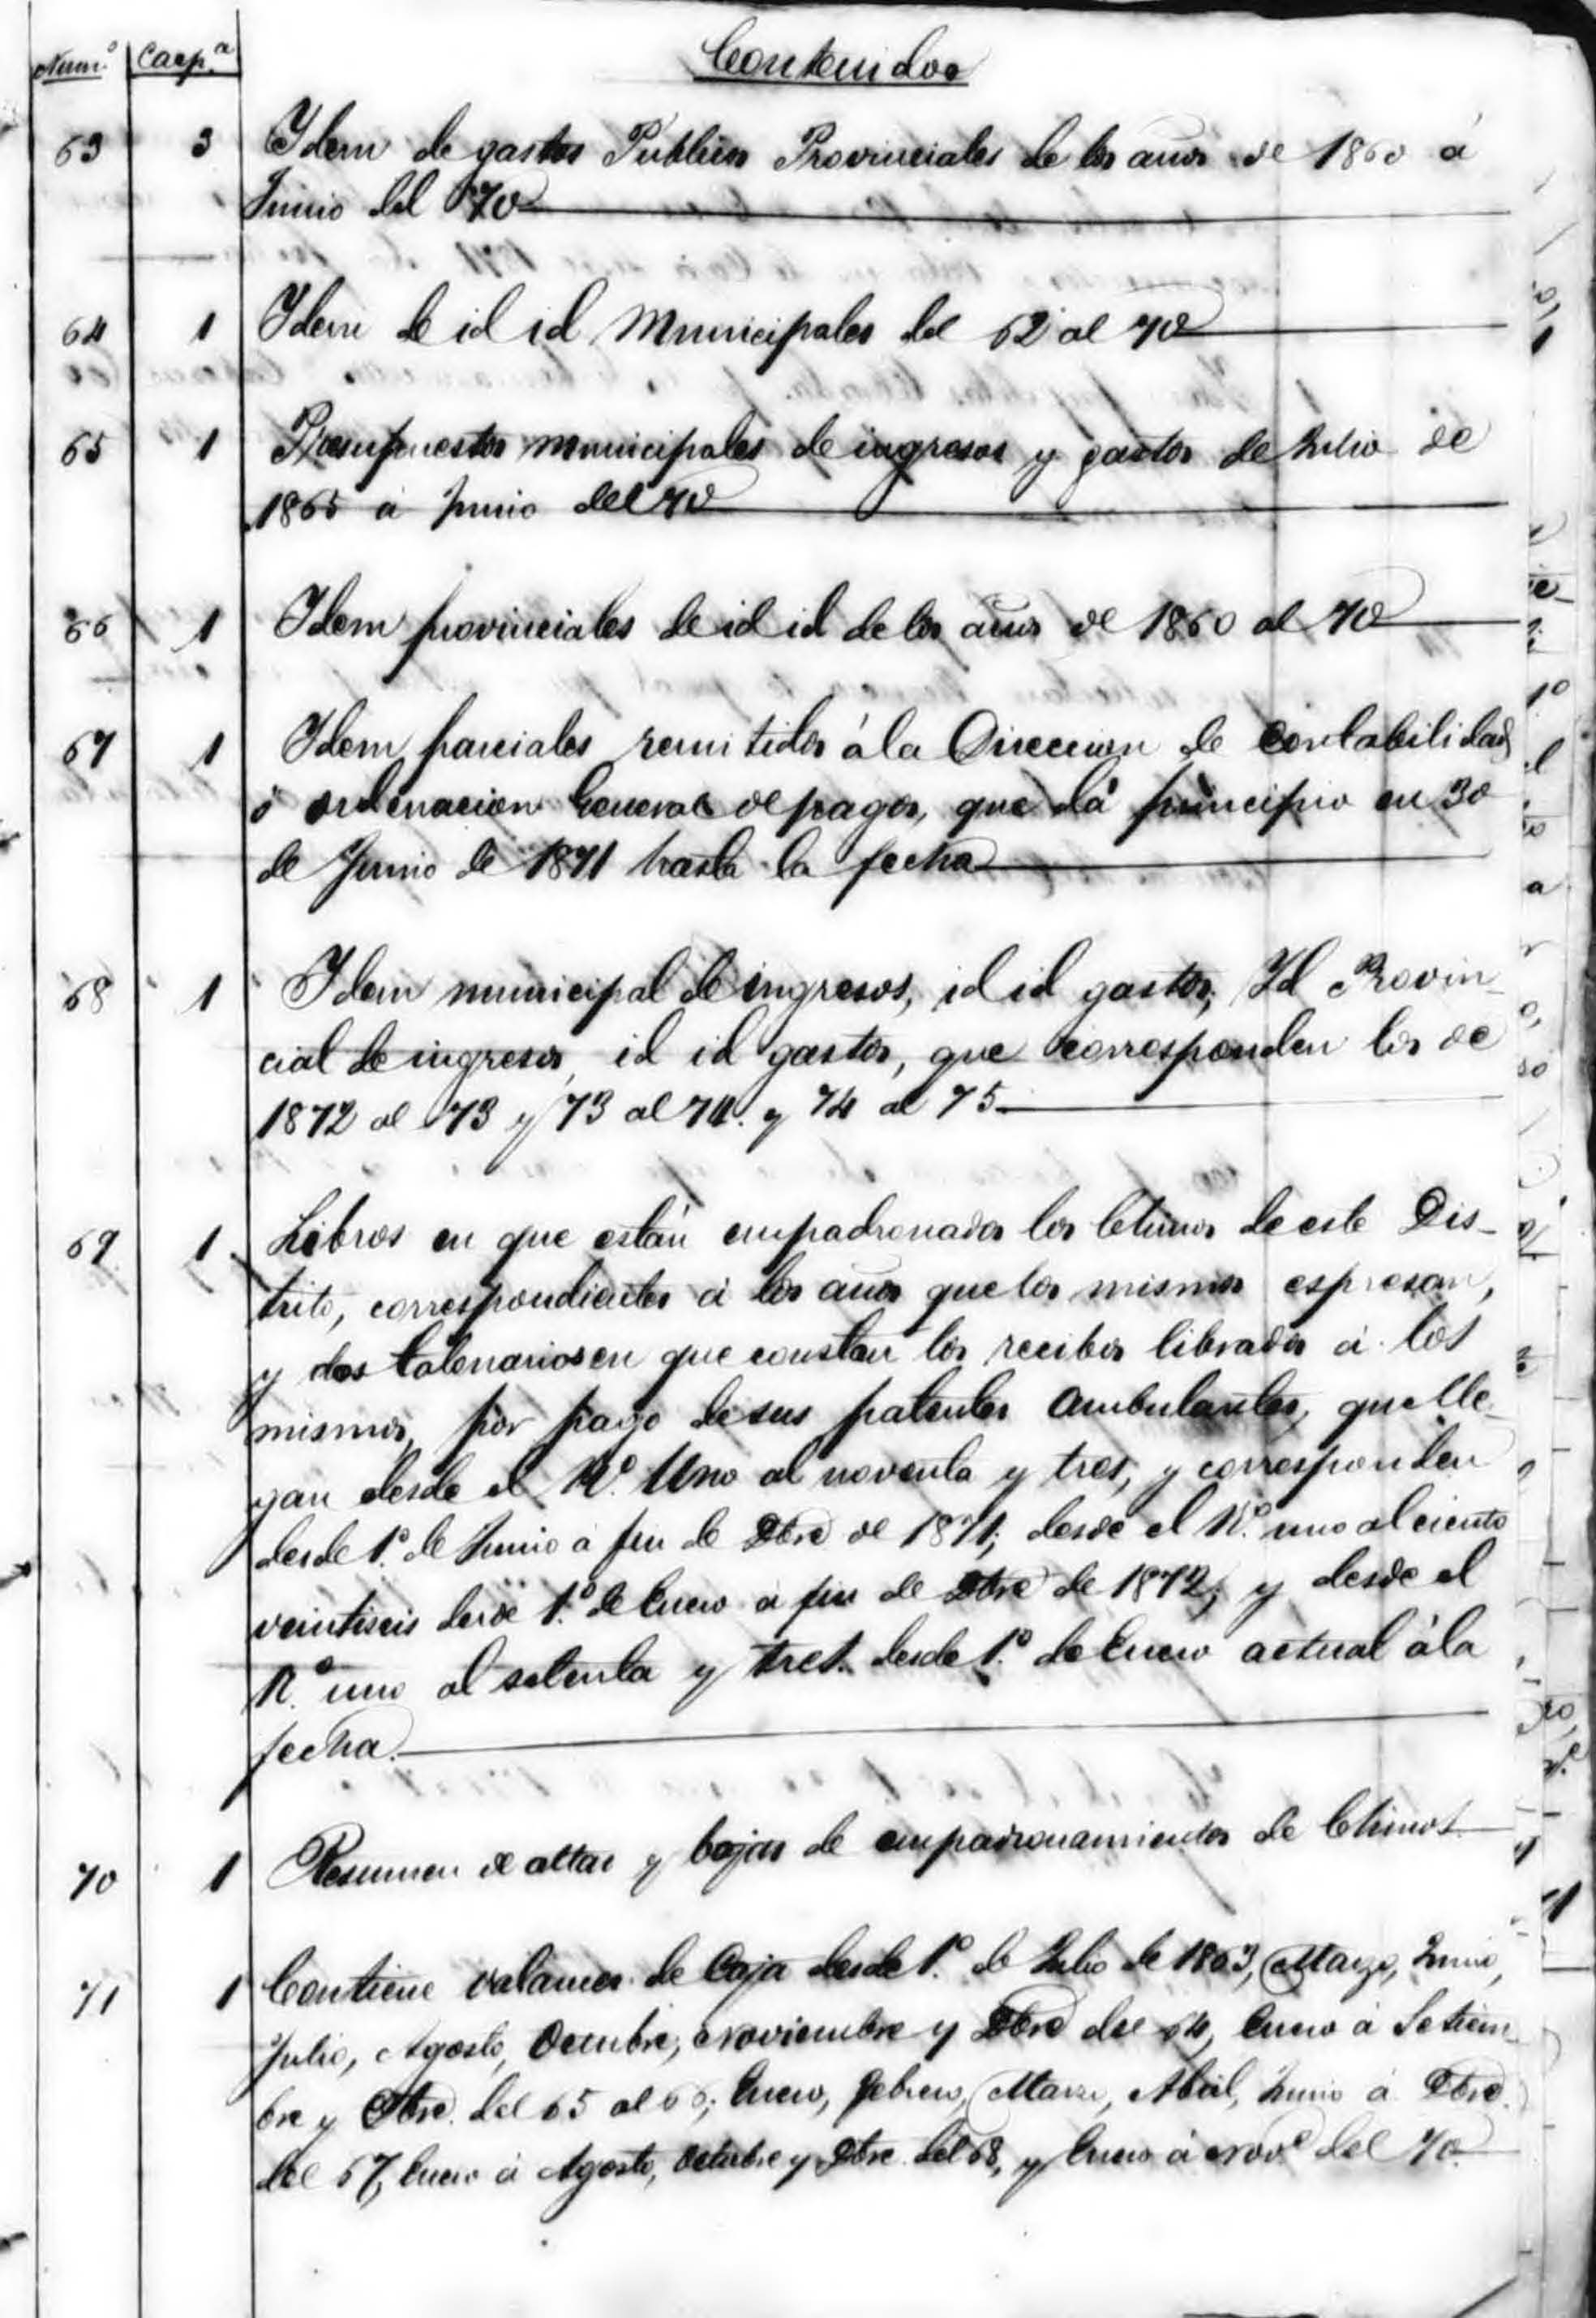 Num.º Carp.ª Contenidos
63 3 Ydem de gastos Publicos Provinciales de los años de 1860 á
Junio del 70
64 1 Ydem de id id Municipales del 62 al 70
65 1 Presupuestos municipales de ingresos y gastos de Julio de
1865 á Junio del 70
66 1 Ydem provinciales de id id de los años de 1860 al 70
67 1 Ydem parciales remitidos á la Direccion de Contabilidad
ó ordenacion General de pagos, que dá principio en 30
de Junio de 1871 hasta la fecha
68 1 Ydem municipal de ingresos, id id gastos, Yd Provin-
cial de ingresos, id id gastos, que corresponden los de
1872 al 73 y 73 al 74. y 74 al 75
69 1 Libros en que están empadronados los Chinos de este Dis-
trito, correspondientes á los años que los mismos espresan,
y dos talonarios en que constan los recibos librados á los
mismos, por pago de sus patentes ambulantes, que lle-
gan desde el N.º Uno al noventa y tres, y corresponden
desde 1.º de Junio á fin de Dbre de 1871; desde el N.º uno al ciento
veintiseis desde 1.º de Enero á fin de Dbre de 1872; y desde el
N.º uno al setenta y tres. desde 1.º de Enero actual á la
fecha.
70 1 Resumen de altas y bajas de empadronamientos de Chinos
71 1 Contiene valances de Caja desde 1.º de Julio de 1863, Marzo, Junio,
Julio, Agosto, Octubre, Noviembre y Dbre del 64, Enero á Setiem-
bre y Dbre. del 65 al 66; Enero, Febrero, Marzo, Abril, Junio á Dbre.
del 67, Enero á Agosto, Octubre y Dbre. del 68, y Enero á Nov.e del 70